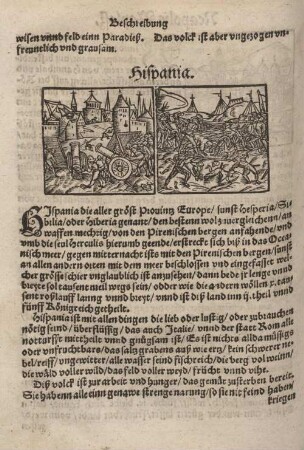 Beschreibung
wisen vnnd feld einn Paradieß. Das volck ist aber vngezogen vn-
freuntlich vnd grausam.
Hispania.
HIspania die aller gröst Prouintz Europe/ sunst Hesperia/ Si
bilia/oder Hiberia genant/ den bestenn wol zuuerglichenn/ an
waffen mechtig/ von den Pirenischen bergen anfahende/ vnd
vmb die seul Herculis hierumb geende/ erstreckt sich biß in das Oce
nisch meer/ gegen mitternacht ists mit den Pirenischen bergen/ sunst
an allen andern orten mit dem meer beschlossen vnd eingefasset wel-
cher grösse schier vnglaublich ist anzusehen/ dann bede jr lenge vnnd
breyt sol tausent meil wegs sein/ oder wie die andern wöllen
sent roßlauff lanng vnnd breyt/ vnnd ist diß land inn ij. theil vnnd
fünff Königreich getheilt.
Hispania ist mit allen dingen die lieb oder lustig/ oder zubrauchen
nötig seind/ überflüssig/ das auch Italie/ vnnd der statt Rom alle
notturfft mittheile vnd gnůgsam ist/ Es ist nichts allda müssig
oder vnfruchtbars/ das saltz grabens auß/ kein schwerer ne-
bel/ reiff/ vngewitter/ alle wasser seind fischreich/ die berg vol weinn/
die wäld voller wild/ das feld voller weyd/ frücht vnnd vihe.
Diß volck ist zur arbeit vnd hunger/ das gemüt zusterben bereit.
Sie haben alle einn genawe strenge narung/ so sie nit feind haben
kriegen